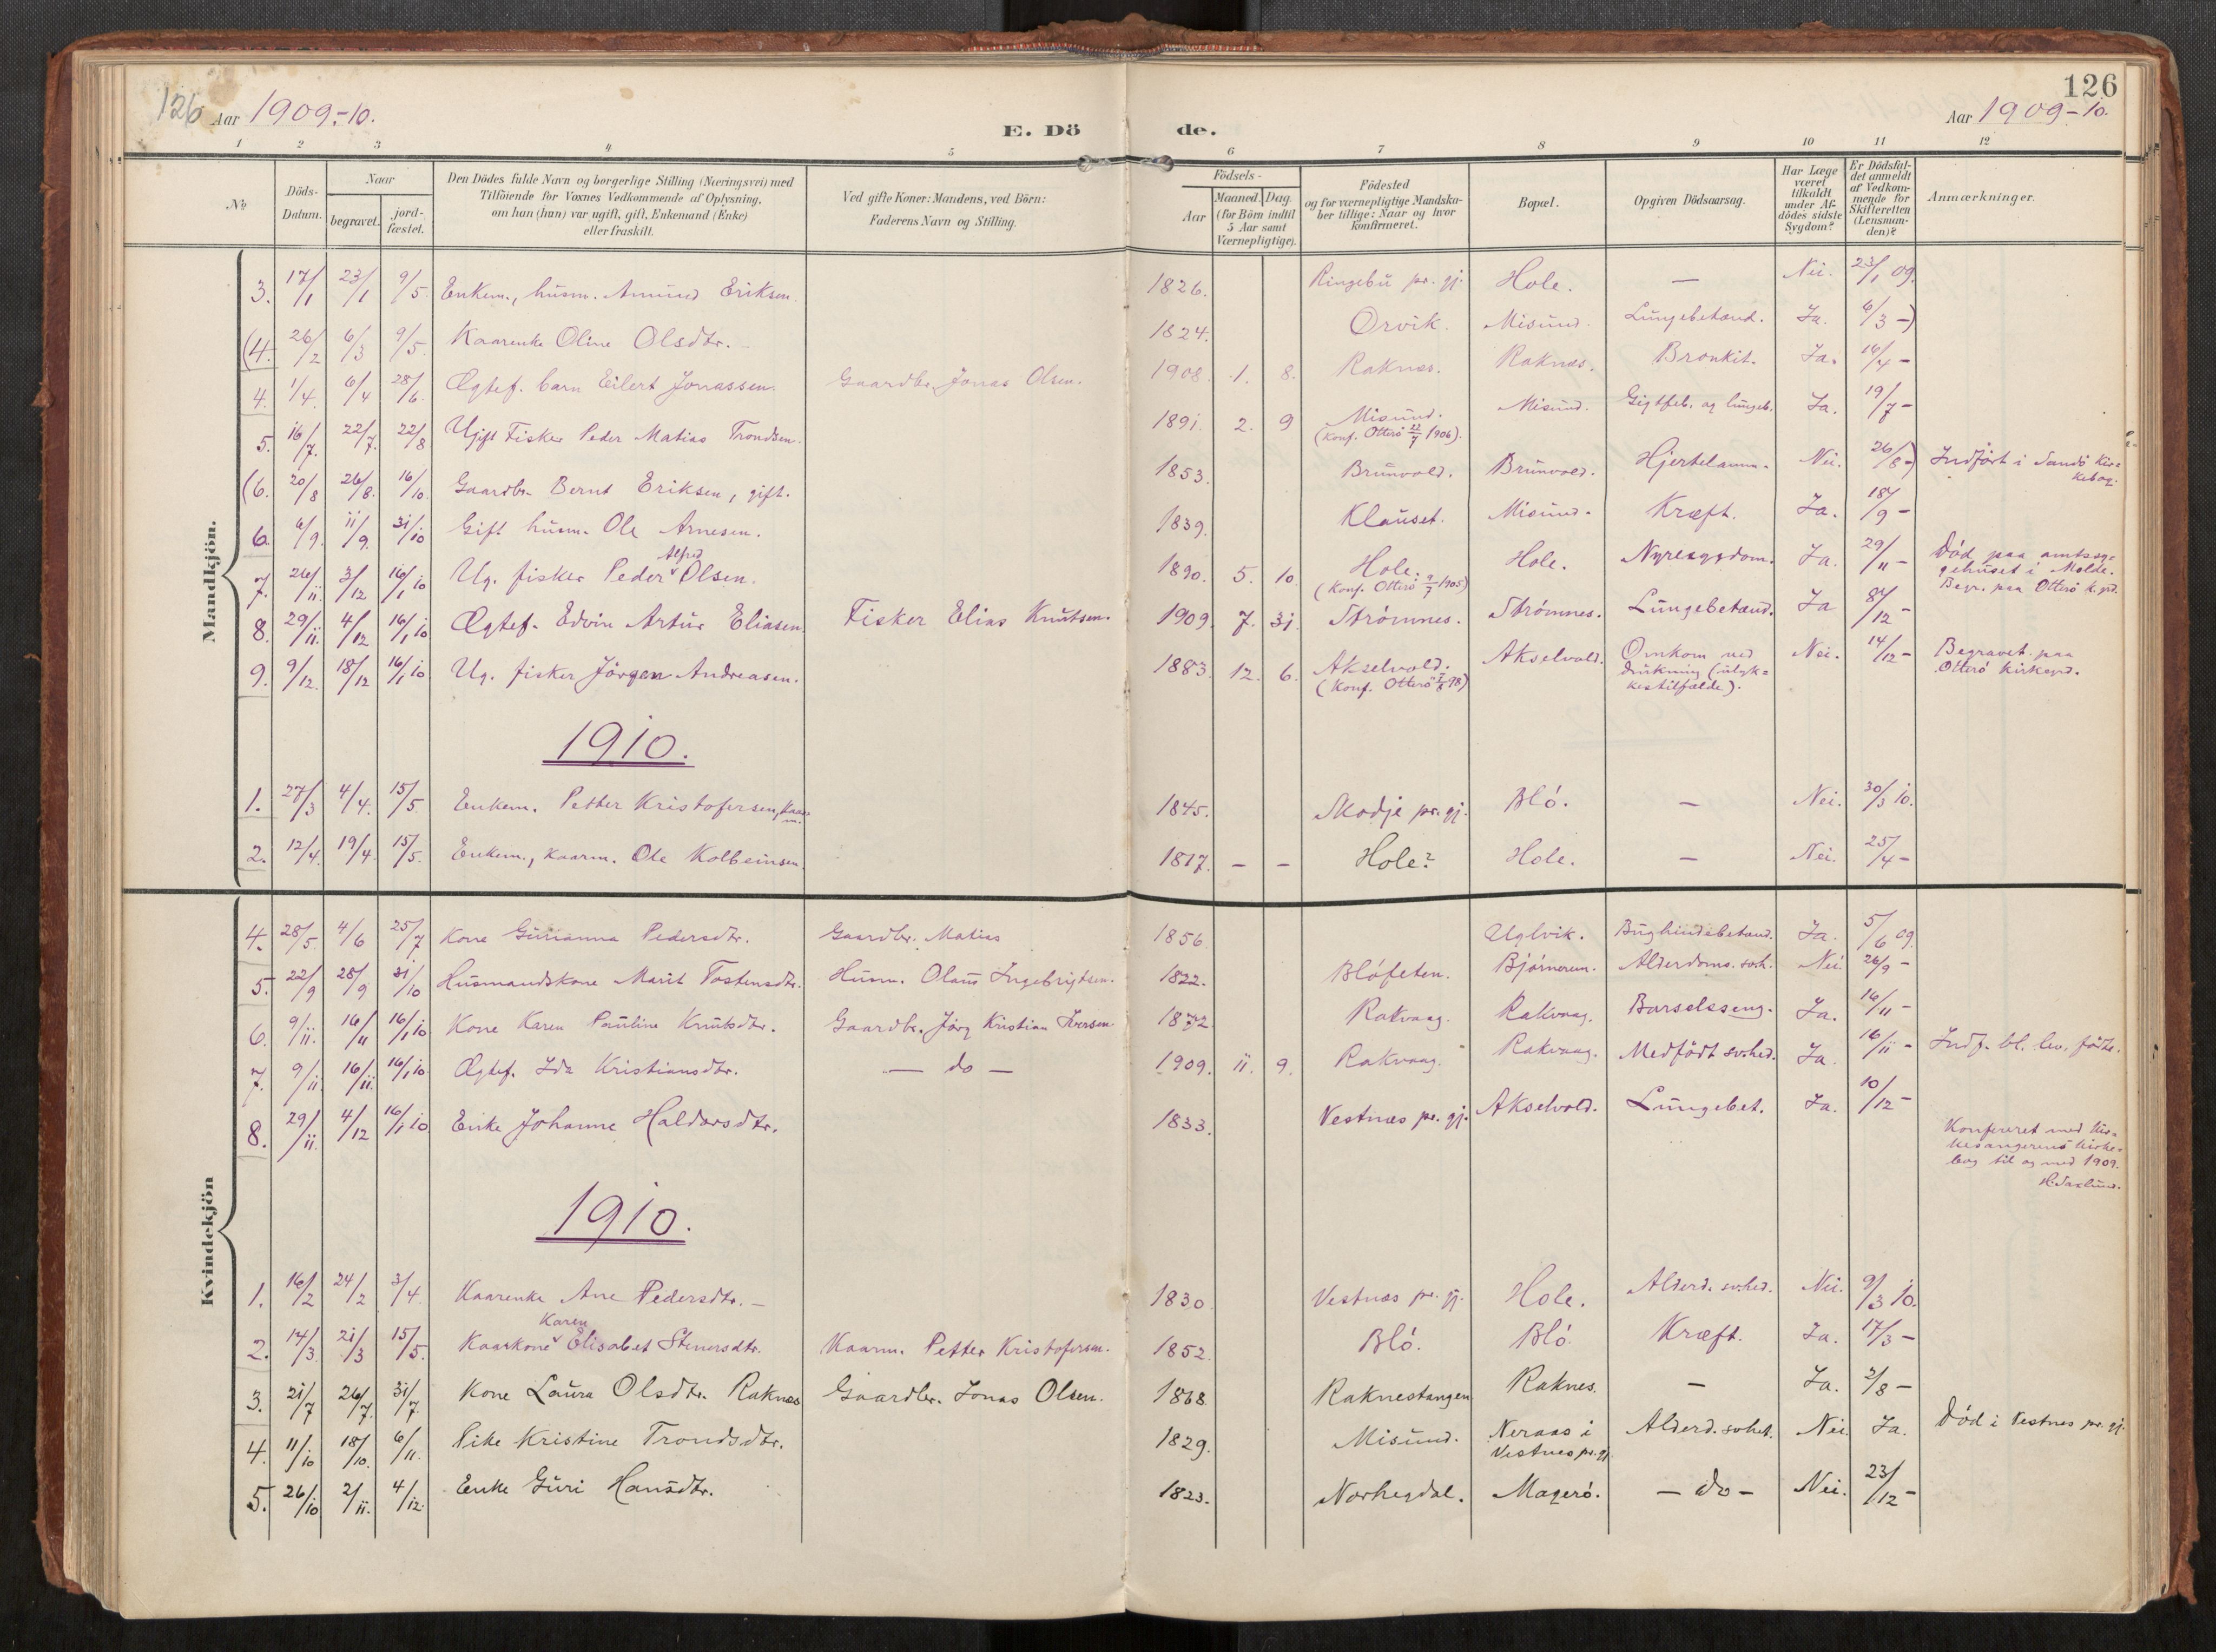 126 Aar 1909.-10.
E. Döde.
126
Aar 1909-10.
1 2 3 4 5 6 7 8 9 10 11 12
No.
Döds-Datum.
Naar
begravet.
jord-fæstet.
Den Dödes fulde Navn og borgerlige Stilling (Næringsvei) med
Tilföiende for Voxnes Vedkommende af Oplysning,
om han (hun) var ugift, gift, Enkemand (Enke)
eller fraskilt.
Ved gifte Koner: Mandens, ved Börn:
Faderens Navn og Stilling.
Födsels-
Aar
Maaned. Dag.
(for Börn indtil
5 Aar samt
Værnepligtige).
Födested
og for værnepligtige Mandska-
ber tillige: Naar og hvor
konfirmeret.
Bopæl.
Opgiven Dödsaarsag.
Har Læge
været
tilkaldt
under Af-
dödes sidste
Sygdom?
Er Dödsfal-
det anmeldt
af Vedkom-
mende for
Skifteretten
(Lensman-
den)?
Anmærkninger.
Mandkjön.
3. 17/1 23/1 9/5 Enkem., husm. Amund Eriksen. 1826. Ringebu pr. gj. Hole. — Nei. 23/1 09.
(4. 26/2 6/3 9/5. Kaarenke Oline Olsdtr. - 1824. Orvik. Misund. Lungebetænd. Ja. 6/3 -)
4. 1/4. 6/4 28/6. Ægtef. barn Eilert Jonassen. Gaardbr. Jonas Olsen. 1908. 1. 8. Raknes. Raknæs. Bronkit. Ja. 16/4 -
5. 16/7. 22/7. 22/8 Ugift Fisker Peder Matias Trondsen. 1891. 2. 9 Misund. (Konf. Otterö 22/7 1906). Misund. Gigtfeb. og lungeb. Ja. 19/7 -
(6. 20/8 26/8. 16/10. Gaardbr. Bernt Eriksen, gift. 1853. Brunvold. Brunvold. Hjertelamm. Nei. 26/8 -) Indført i Sandö Kir-
kebog.
6. 6/9. 11/9. 31/10 Gift husm. Ole Arnesen. 1839. Klauset. Misund. Kræft. Ja. 18/9 -
7. 26/11. 3/12 16/1 10 Ug. fisker Peder Alfred Olsen. 1890. 5. 10. Hole. (Konf. Otterö 9/7 1905) Hole. Nyresygdom. Ja. 29/11 - Död paa amtssy-
gehuset i Molde.
Begr. paa Otterö k.grd.
8. 29/11. 4/12 16/1 10 Ægtef. Edvin Artur Eliasen. Fisker Elias Knutsen. 1909. 7. 31. Strømnes. Strømnes. Lungebetænd. Ja 8/12 -
9. 9/12. 18/12 16/1 10. Ug. fisker Jörgen Andreasen. 1883. 12. 6. Akselvold. (Konf. Otterö 98) Akselvold. Omkom ved
drukning (ulyk-
kestilfælde). Nei. 14/12 - Begravet paa
Otterö kirkegrd.
1910.
1. 27/3 4/4. 15/5. Enkem. Petter Kristofersen, kaarm. 1845. Skodje pr. gj. Blö. — Nei. 30/3 10.
2. 12/4. 19/4. 15/5. Enkem., kaarm. Ole Kolbeinsen. 1817. - - Hole? Hole. — Nei. 25/4 -
Kvindekjön
4. 28/5. 4/6 25/7 Kone Gurianna Pedersdtr. Gaardbr. Matias 1856. Uglvik. Bughindebetænd. Ja. 5/6 09.
5. 22/9 28/9 31/10 Husmandskone Marit Tostensdtr. Husm. Olaus Ingebrigtsen. 1822. Blöfeten. Bjørnerem. Alderdoms. svh. Nei. 26/9 -
6. 9/11. 16/11 16/1 10 Kone Karen Pauline Knutsdtr. Gaardbr. Jörg Kristian Iversen. 1872. Rakvaag. Rakvaag. Barselsseng. Ja. 16/11 -
7. 9/11 16/11. 16/1 10. Ægtef. Ida Kristiansdtr. — do — 1909. 11. 9. Rakvaag. Rakvaag. Medfödt svhed. Ja. 16/11 - Indf. bl. lev. fødte.
8. 29/11. 4/12 16/1 10 Enke Johanne Haldorsdtr. 1833. Vestnæs pr. gj. Akselvold. Lungebet. Ja. 10/12 -
Konfereret med Kir-
kesangerens kirke-
bog til og med 1909.
1910.
1. 16/2 24/2 3/4. Kaarenke Ane Pedersdtr. — 1830. Vestnæs pr. gj. Hole. Alderd. svhed. Nei. 9/3 10.
2. 14/3. 21/3 15/5. Kaarkone Karen Elisabet Stenersdtr. Kaarm. Petter Kristofersen. 1852. Blö. Blö. Kræft. Ja. 17/3 -
3. 21/7 26/7. 31/7. Kone Laura Olsdtr. Raknæs Gaardbr. Jonas Olsen. 1868. Raknestangen Raknes. — Ja. 2/8 -
4. 11/10 18/10. 6/11. Pike Kristine Trondsdtr. 1829. Misund. Neraas i
Vestnes pr. gj. Alderd. svhet. Nei. Ja. Död i Vestnes pr. gj.
5. 26/10 2/11. 4/12. Enke Guri Hansdtr. 1823. Norhegdal. Magerö. — do — Nei. 23/12 -